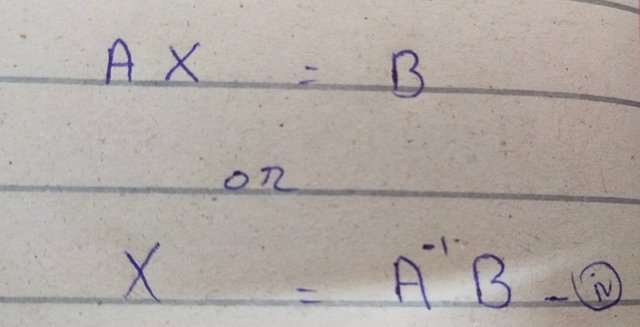 A X = B
or
X = A⁻¹ B - (iv)